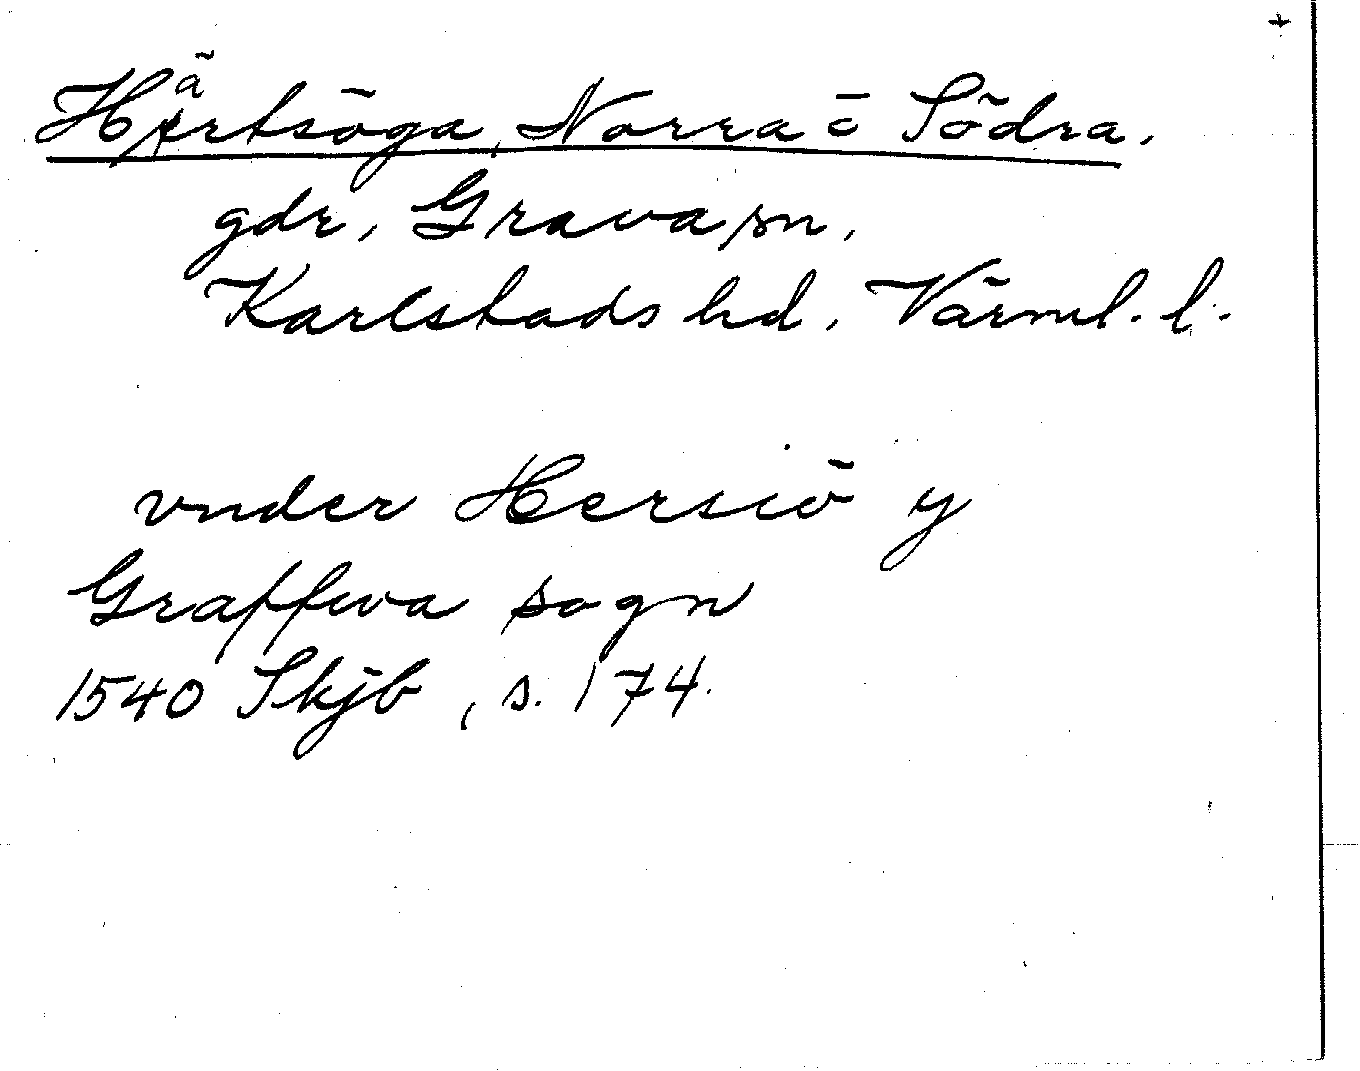 Härtsöga, Norra o Södra.
gdr, Grava sn,
Karlstads hd, Värml. l.
vnder Hersiö y
Graffwa sogn
1540 Skjb, s. 174.